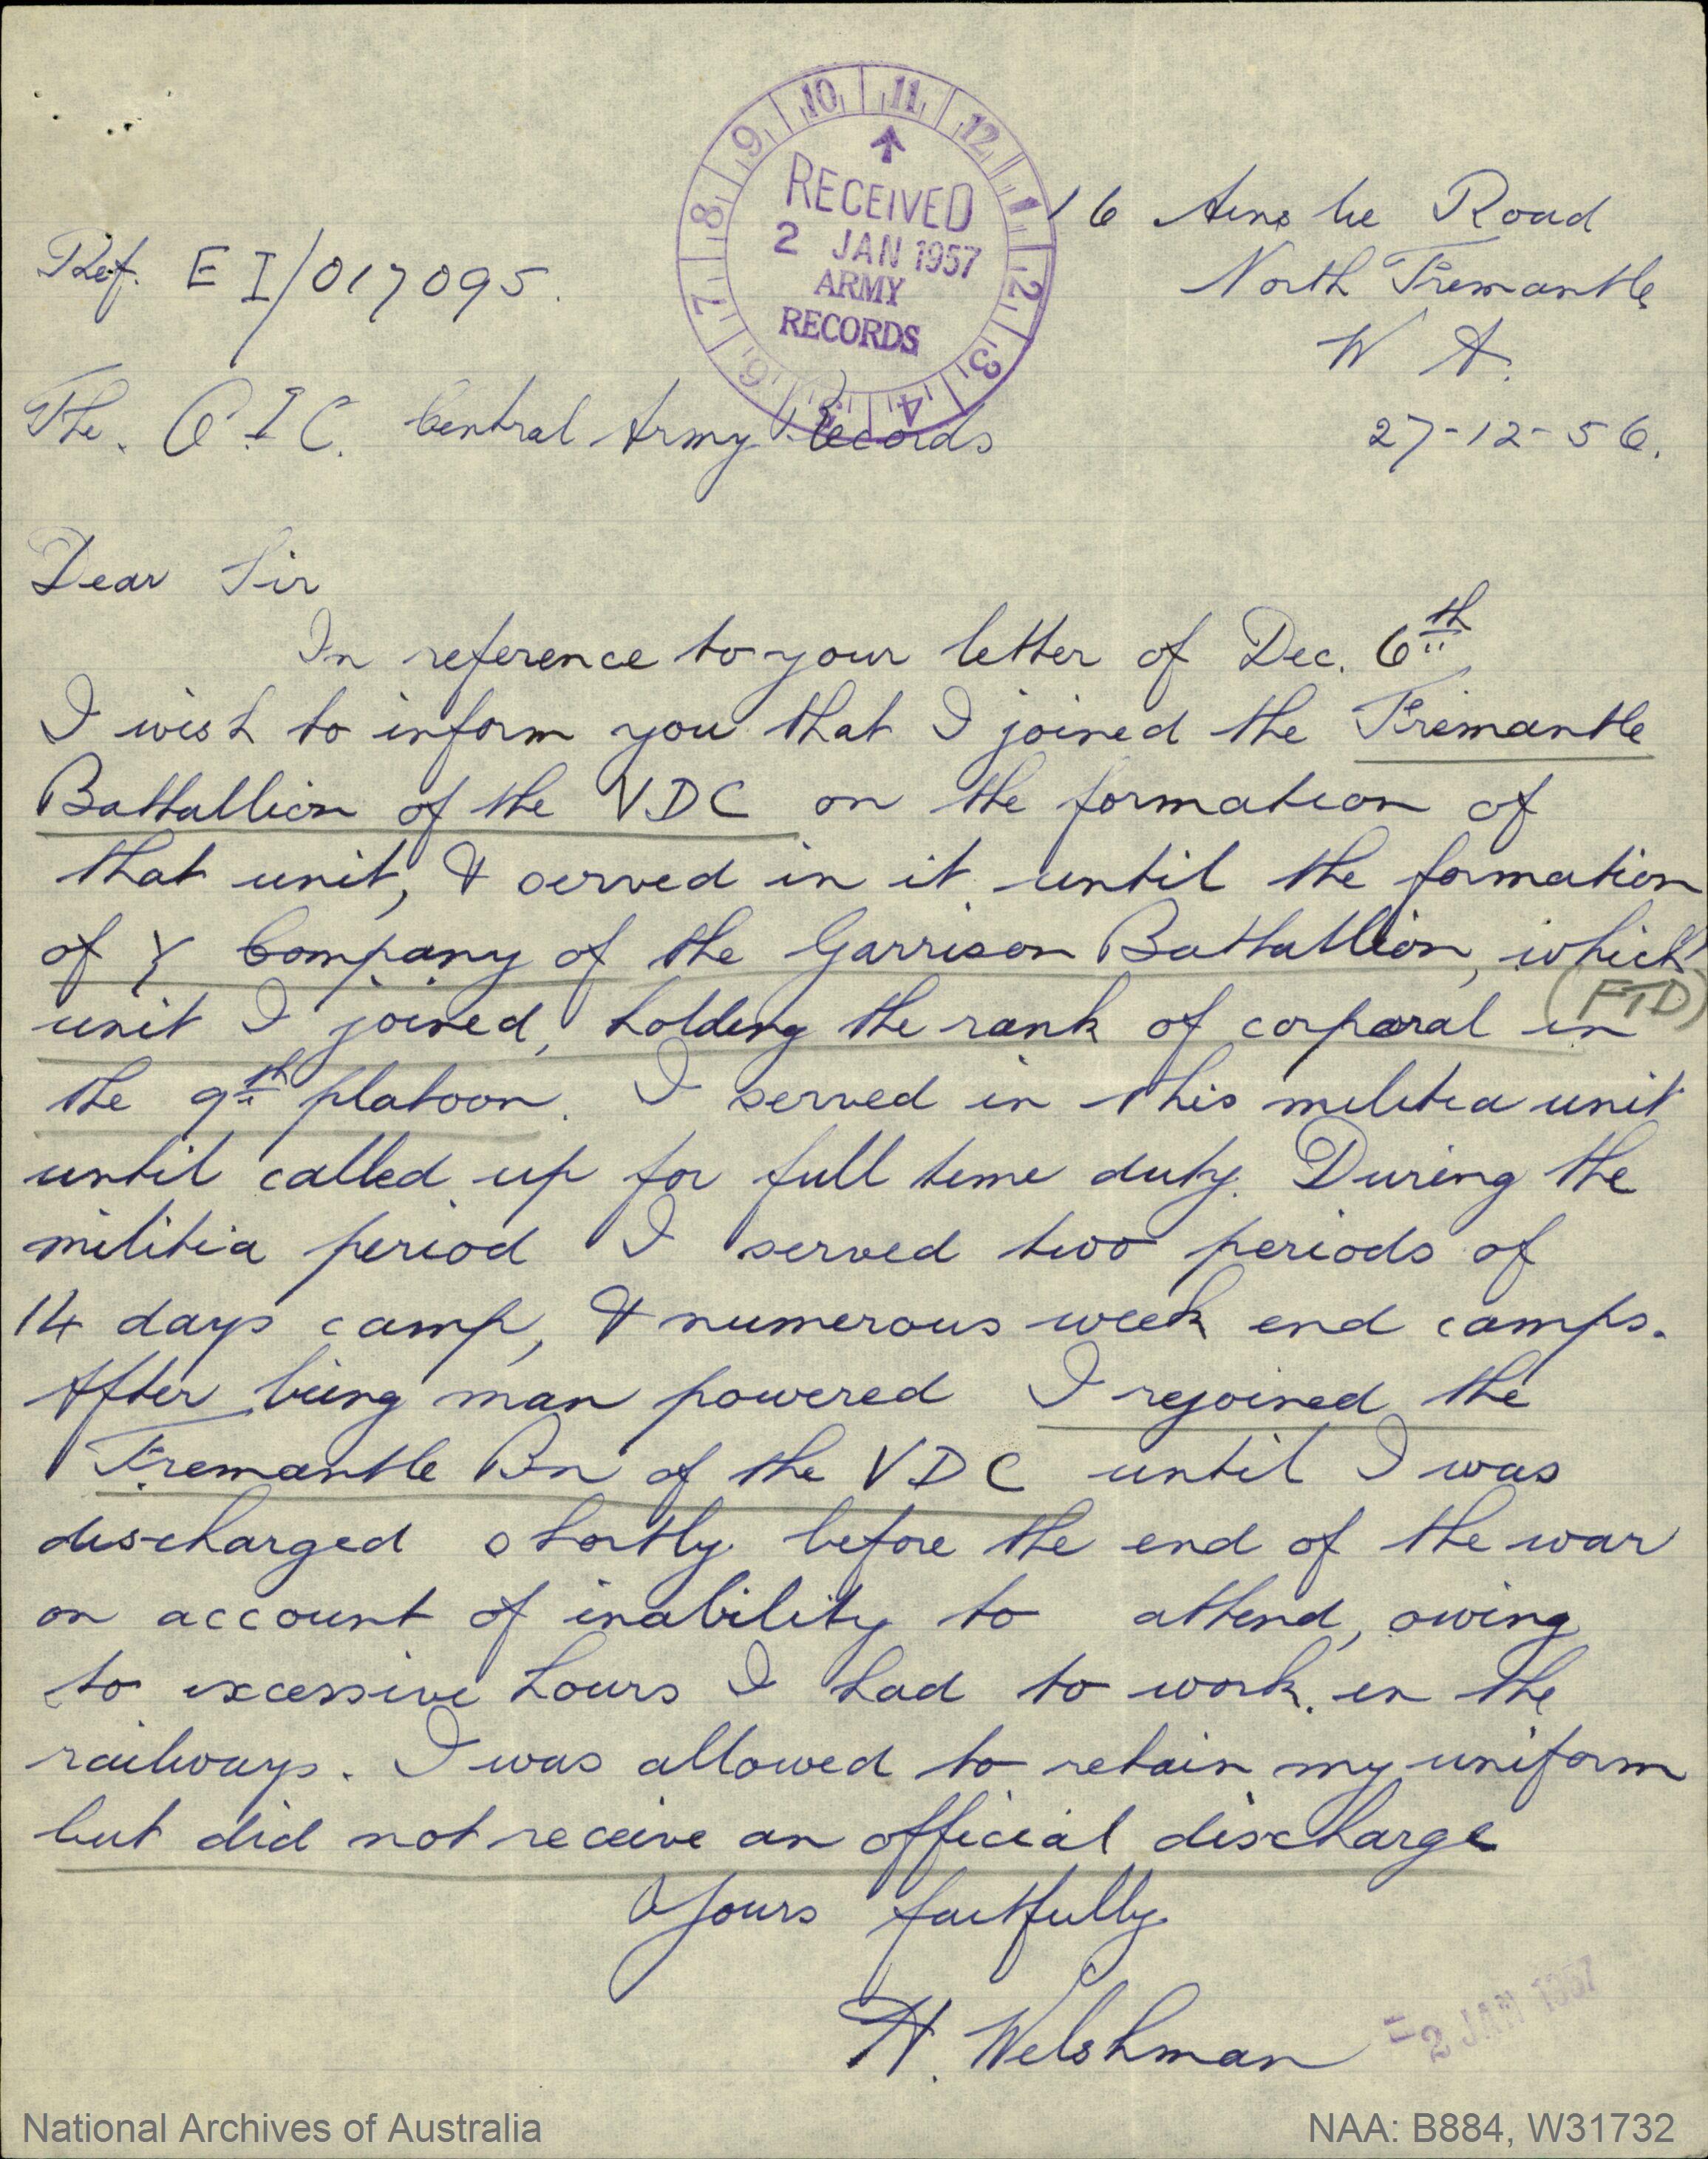 10 11 12 1 2 3 4 5 6 7 8 9
RECEIVED
2 JAN 1957
ARMY
RECORDS
16 Ainslie Road
North Fremantle
W A.
27-12-56.
Ref. E I/017095.
The. O I C. Central Army Records
Dear Sir
In reference to your letter of Dec. 6th
I wish to inform you that I joined the Fremantle
Battallion of the VDC on the formation of
that unit, & served in it until the formation
of Y Company of the Garrison Battallion, which
(FTD)
unit I joined, holding the rank of corporal in
the 9th platoon. I served in this militia unit
until called up for full time duty. During the
militia period I served two periods of
14 days camp, & numerous week end camps.
After being man powered I rejoined the
Fremantle Bn of the VDC until I was
discharged shortly before the end of the war
on account of inability to attend, owing
to excessive hours I had to work in the
railways. I was allowed to retain my uniform
but did not receive an official discharge
Yours faitfully
H. Welshman
-2 JAN 1957
National Archives of Australia
NAA: B884, W31732